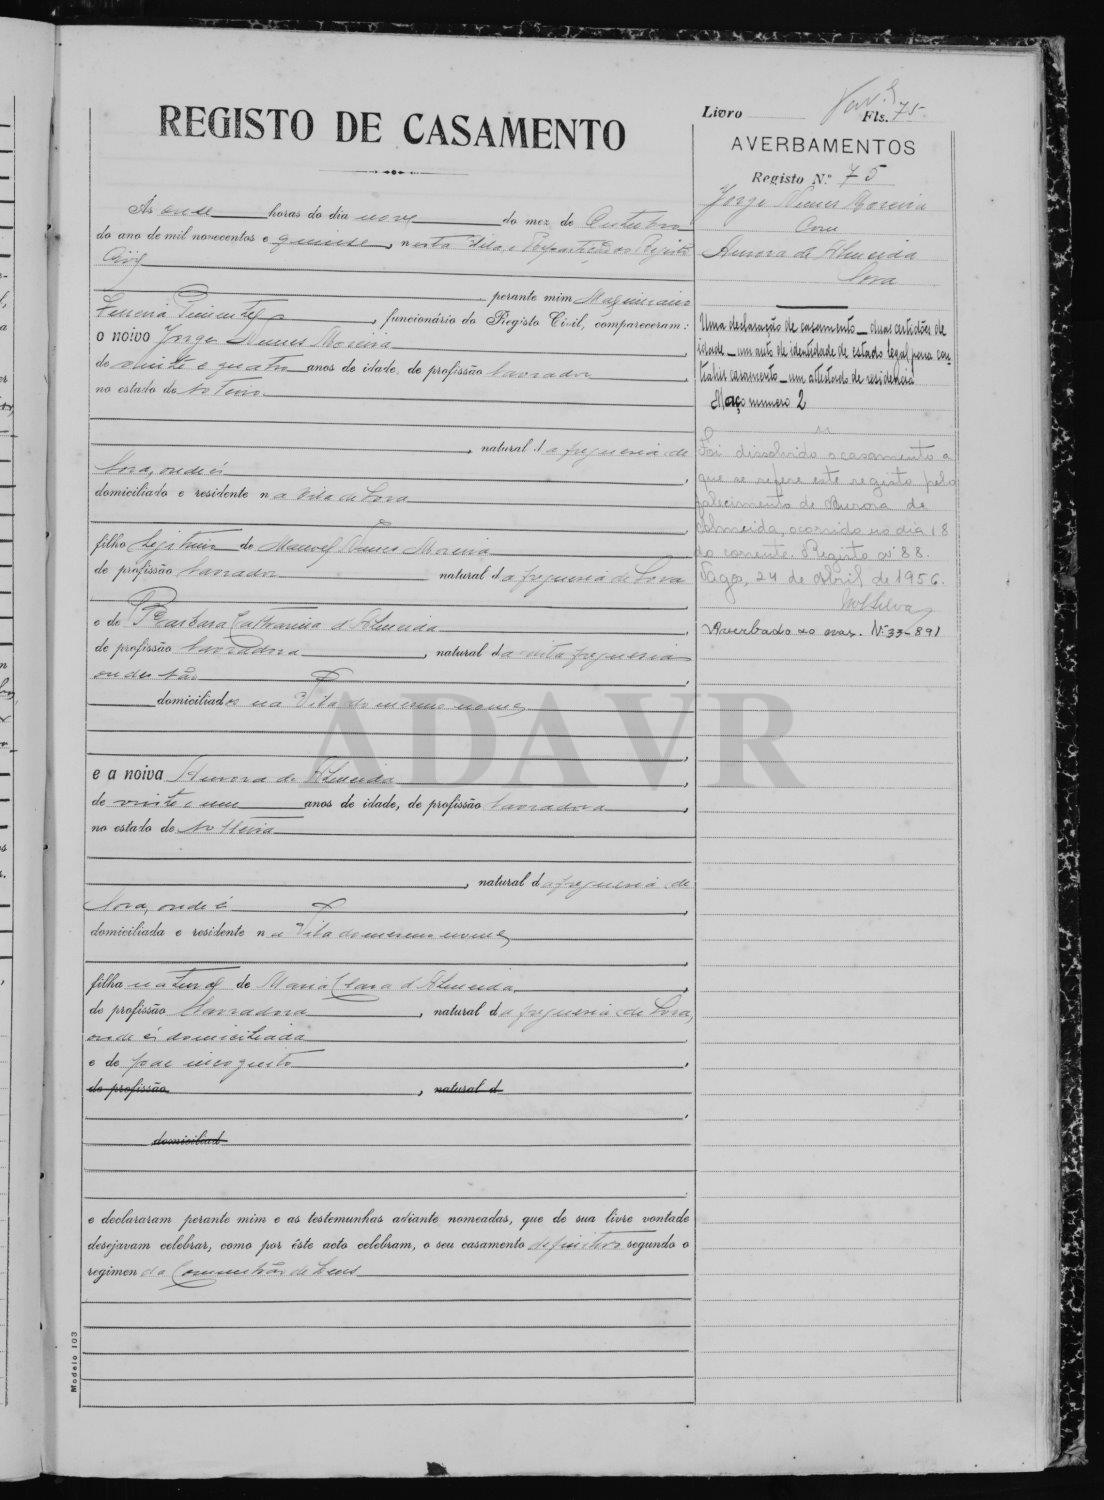 Livro Fls. 75.
REGISTO DE CASAMENTO
AVERBAMENTOS
Registo N.º 75
Jorge Nunes Moreira
Com
Aurora de Almeida
Sora
Ás onse horas do dia nove do mez de Outubro
do ano de mil novecentos e quinse, nesta Vila e Repartição do Registo
Civil
perante mim Maximiano
Ferreira Pimentel, funcionário do Registo Civil, compareceram:
o noivo Jorge Nunes Moreira
de vinte e quatro anos de idade, de profissão lavrador,
no estado de solteiro
, natural da freguesia de
Sora, onde é
domiciliado e residente na Vila de Sora
filho legitimo de Manuel Nunes Moreira
de profissão lavrador natural da freguesia de Sora
e de Barbara Catharina d'Almeida,
de profissão lavradora, natural da freguesia
onde são
domiciliados na Vila do mesmo nome
e a noiva Aurora de Almeida
de vinte e um anos de idade, de profissão lavradora,
no estado de solteira
, natural da freguesia de
Sora, onde é
domiciliada e residente na Vila do mesmo nome
filha natural de Maria Clara d'Almeida,
de profissão lavradora, natural da freguesia de Sora,
onde é domiciliada
e de pae incognito,
de profissão, natural d
domiciliad
e declararam perante mim e as testemunhas adiante nomeadas, que de sua livre vontade
desejavam celebrar, como por êste acto celebram, o seu casamento definitivo segundo o
regimen da Communhão de bens
Modelo 103
Uma declaração de casamento _ duas certidões de
idade _ um auto de identidade de estado legal para con-
trahir casamento _ um attestado de residencia
Maço numero 2
Foi dissolvido o casamento a
que se refere este registo pelo
falecimento de Aurora de
Almeida, ocorrido no dia 18
do corrente. Registo nº 88.
Vagos, 24 de Abril de 1956.
Silva
Averbado ao N.º 33-891
ADAVR